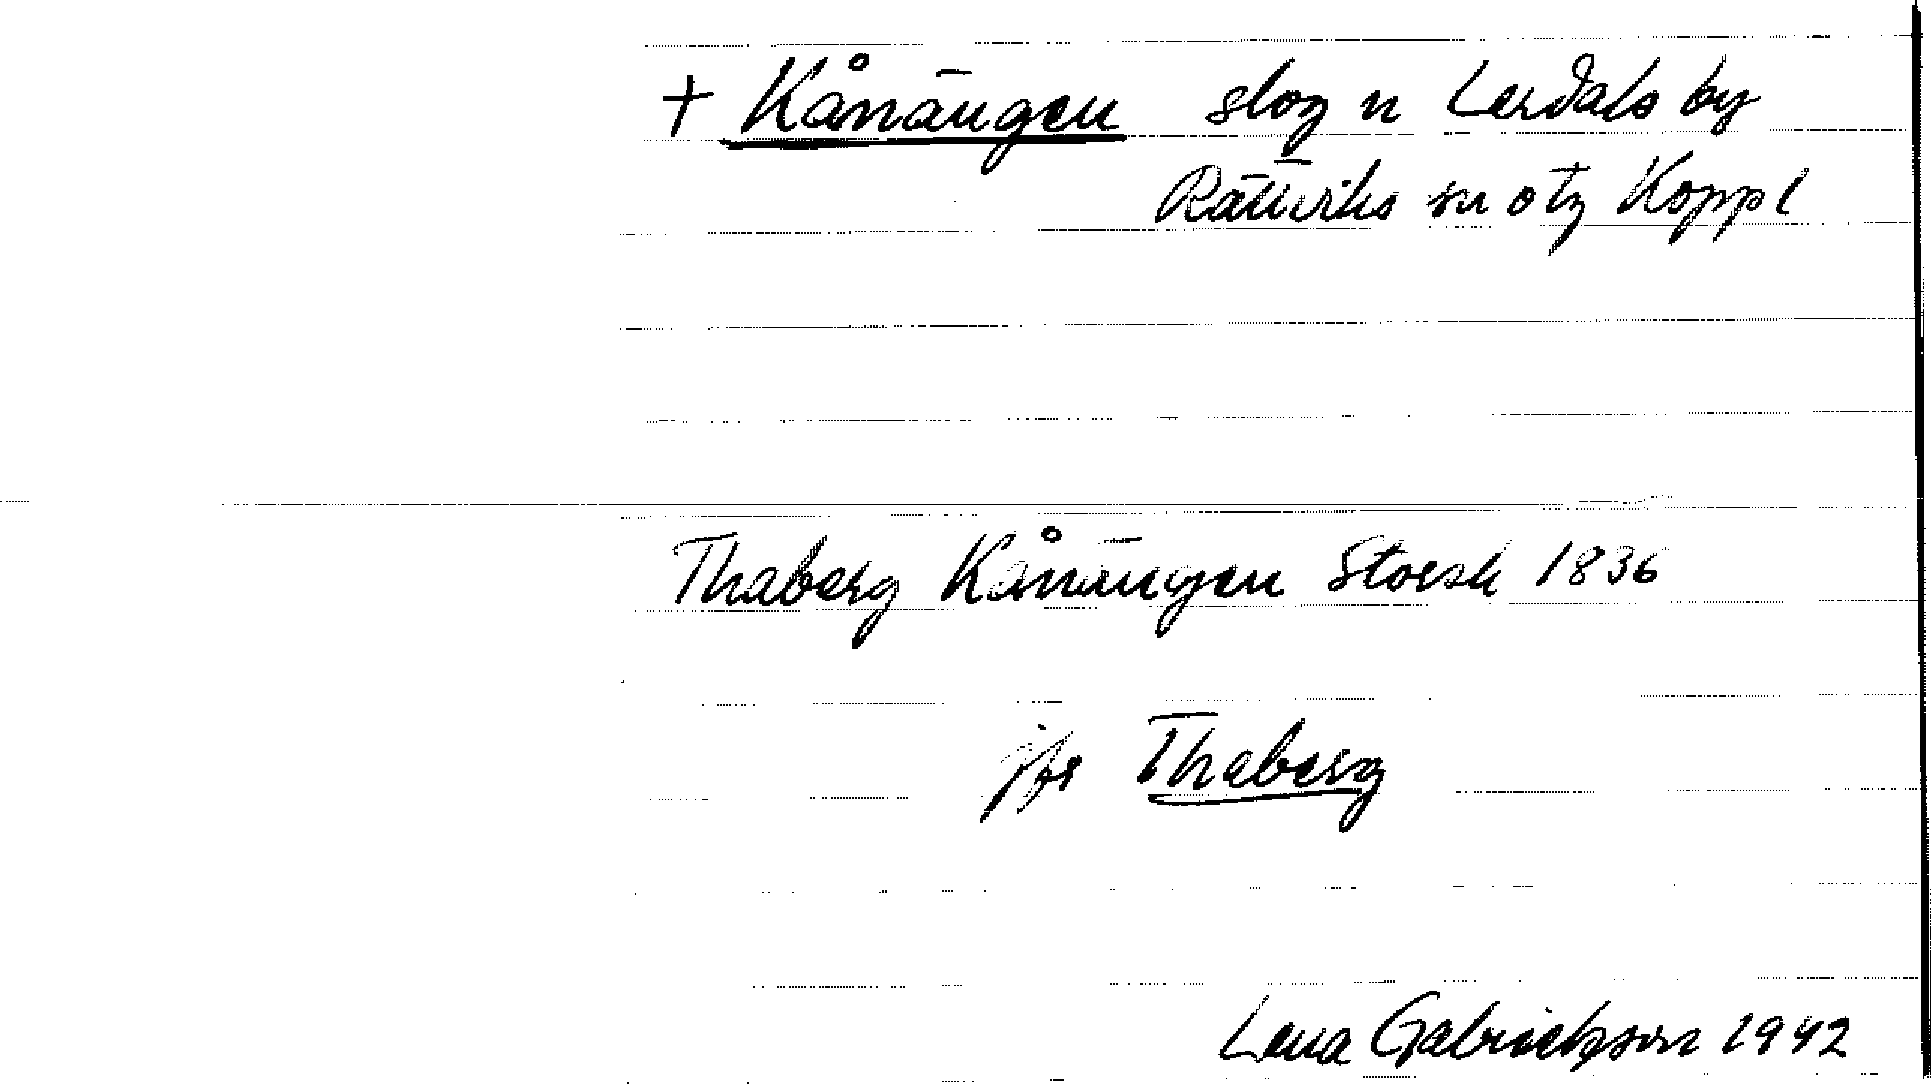 + Kånängen slog n Lerdals by
Rättviks sn o tg Koppl
Thaberg Kånängen Storsk 1836
jfr Thaberg
Lena Gabrielsson 1942